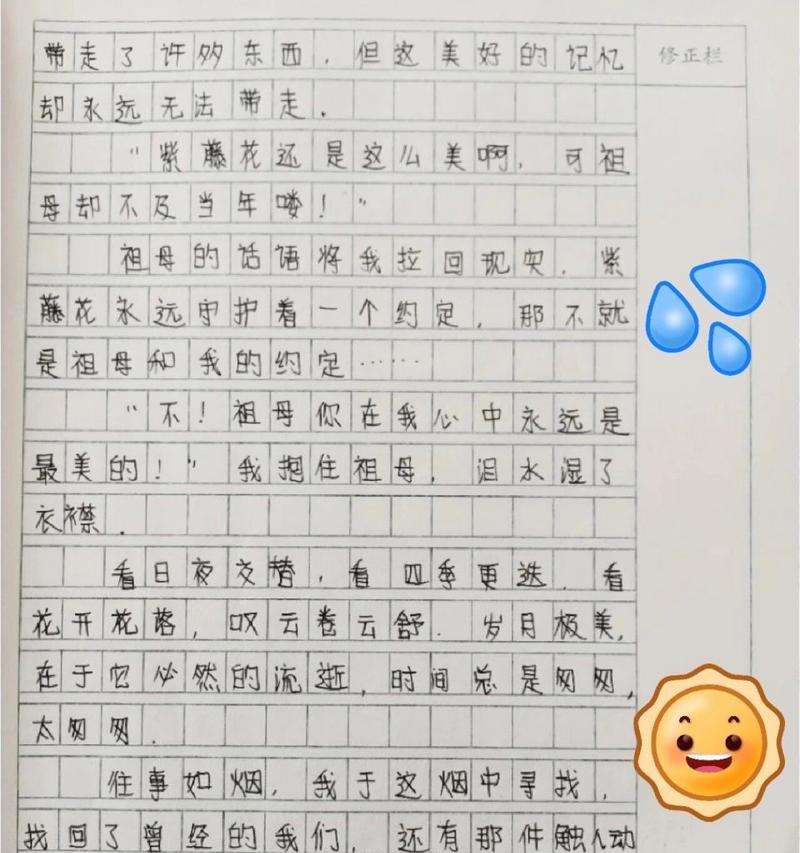 带走了许多东西，但这美好的记忆
修正栏
却永远无法带走．
“紫藤花还是这么美啊，可祖
母却不及当年喽！”
祖母的话语将我拉回现实．紫
藤花永远守护着一个约定，那不就
是祖母和我的约定……
“不！祖母你在我心中永远是
最美的！”我抱住祖母，泪水湿了
衣襟．
看日夜交替，看四季更迭．看
花开花落，叹云卷云舒．岁月极美，
在于它必然的流逝，时间总是匆匆，
太匆匆．
往事如烟，我于这烟中寻找，
找回了曾经的我们，还有那件触人动